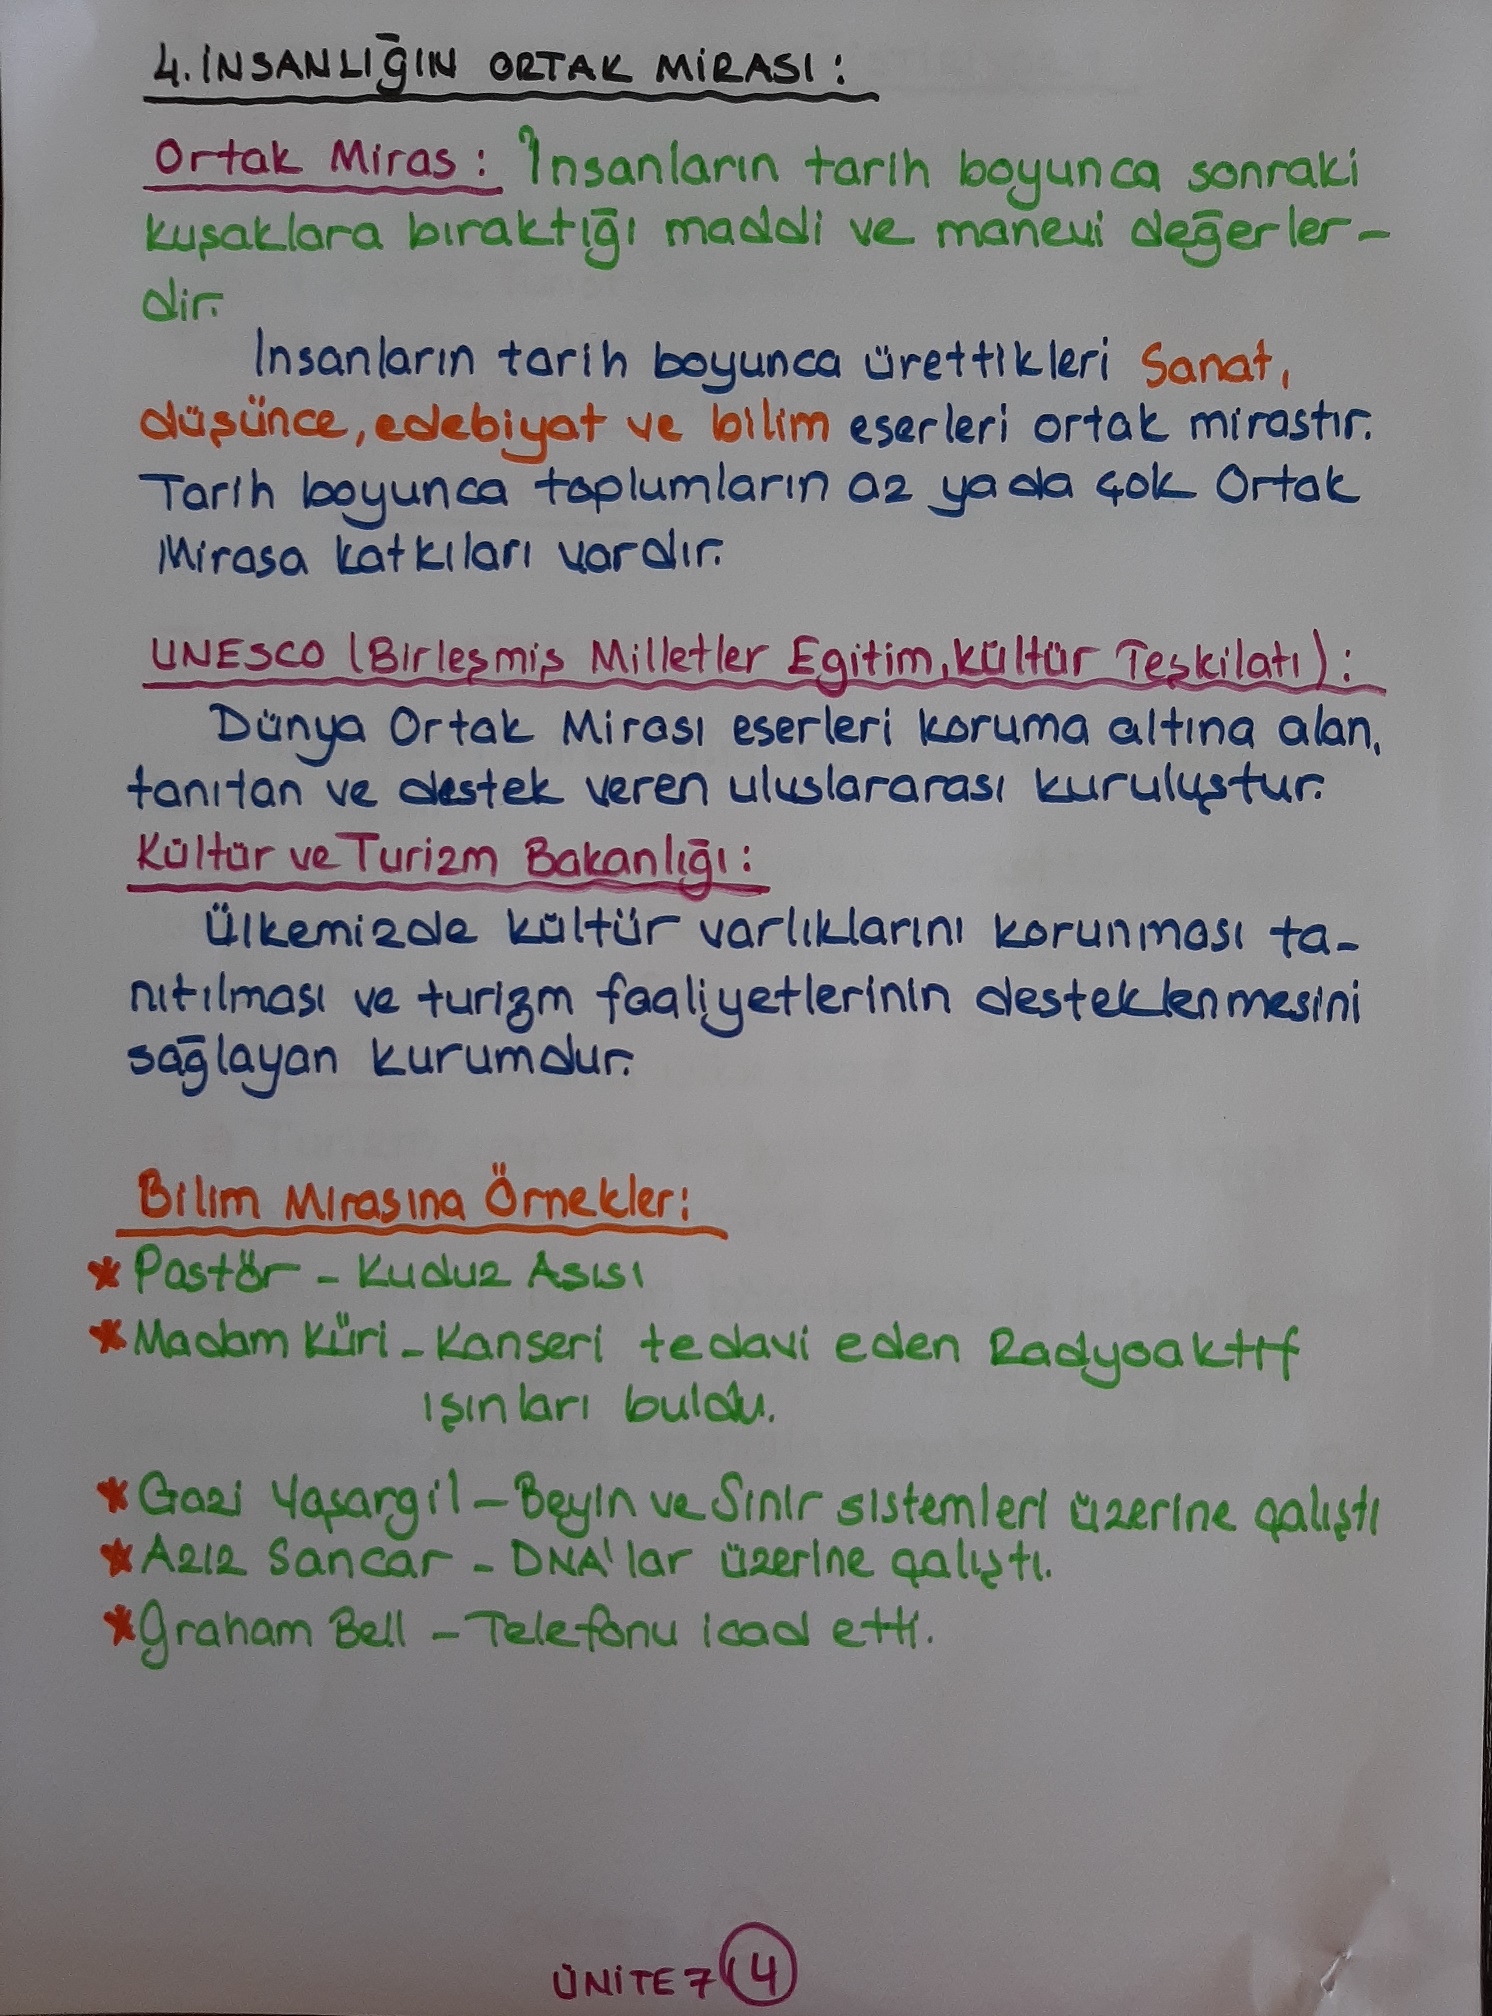 4. İNSANLIĞIN ORTAK MİRASI :
Ortak Miras : İnsanların tarih boyunca sonraki
kuşaklara bıraktığı maddi ve manevi değerler-
dir.
İnsanların tarih boyunca ürettikleri Sanat,
düşünce, edebiyat ve bilim eserleri ortak mirastır.
Tarih boyunca toplumların az ya da çok Ortak
Mirasa katkıları vardır.
UNESCO (Birleşmiş Milletler Egitim, Kültür Teşkilatı) :
Dünya Ortak Mirası eserleri koruma altına alan,
tanıtan ve destek veren uluslararası kuruluştur.
Kültür ve Turizm Bakanlığı :
Ülkemizde kültür varlıklarını korunması ta-
nıtılması ve turizm faaliyetlerinin desteklenmesini
sağlayan kurumdur.
Bilim Mirasına Örnekler :
* Pastör - Kuduz Asısı
* Madam Küri - Kanseri tedavi eden Radyoaktif
ışınları buldu.
* Gazi Yaşargil - Beyin ve Sinir sistemleri üzerine çalıştı
* Aziz Sancar - DNA'lar üzerine çalıştı.
* Graham Bell - Telefonu icad etti.
ÜNİTE 7 4